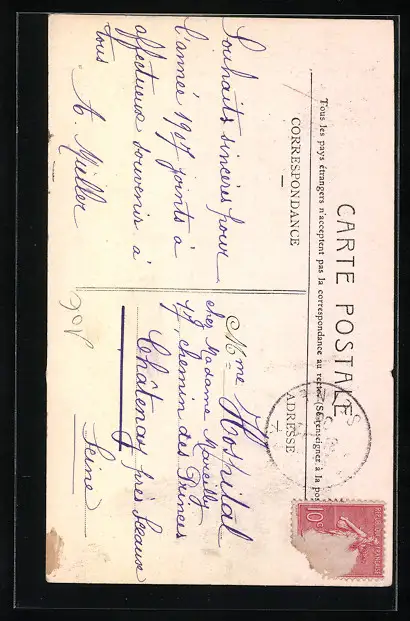 CARTE POSTALE
Tous les pays étrangers n'acceptent pas la correspondance au recto. (Se renseigner à la pos
CORRESPONDANCE
ADRESSE
Souhaits sincères pour
l'année 1907 joints à
affectueux souvenirs à
tous
A. Müller
Mme Hospital
chez Madame
47, chemin des Princes
Châtenay près Sceaux
Seine
10c